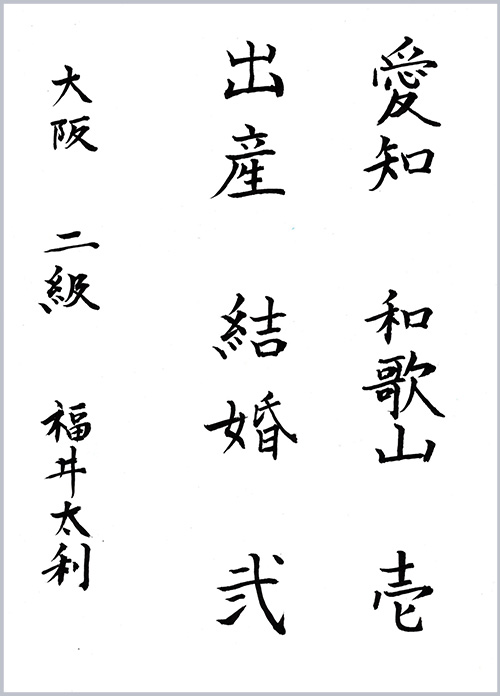 愛知 和歌山 壱
出産 結婚 弐
大阪 二級 福井太利